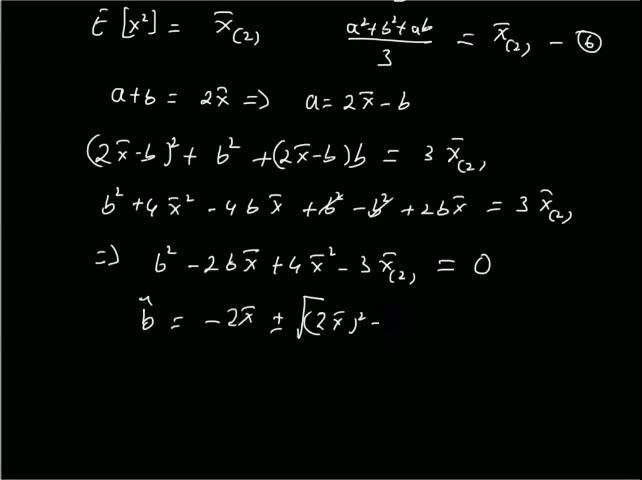 E [x²] = x̄₍₂₎   (a²+b²+ab)/3 = x̄₍₂₎ — ⑥
a+b = 2x̄ => a = 2x̄ - b
(2x̄-b)² + b² + (2x̄-b)b = 3 x̄₍₂₎
b² + 4x̄² - 4bx̄ + b² - b² + 2bx̄ = 3 x̄₍₂₎
=> b² - 2bx̄ + 4x̄² - 3x̄₍₂₎ = 0
b̂ = -2x̄ ± √(2x̄)² -